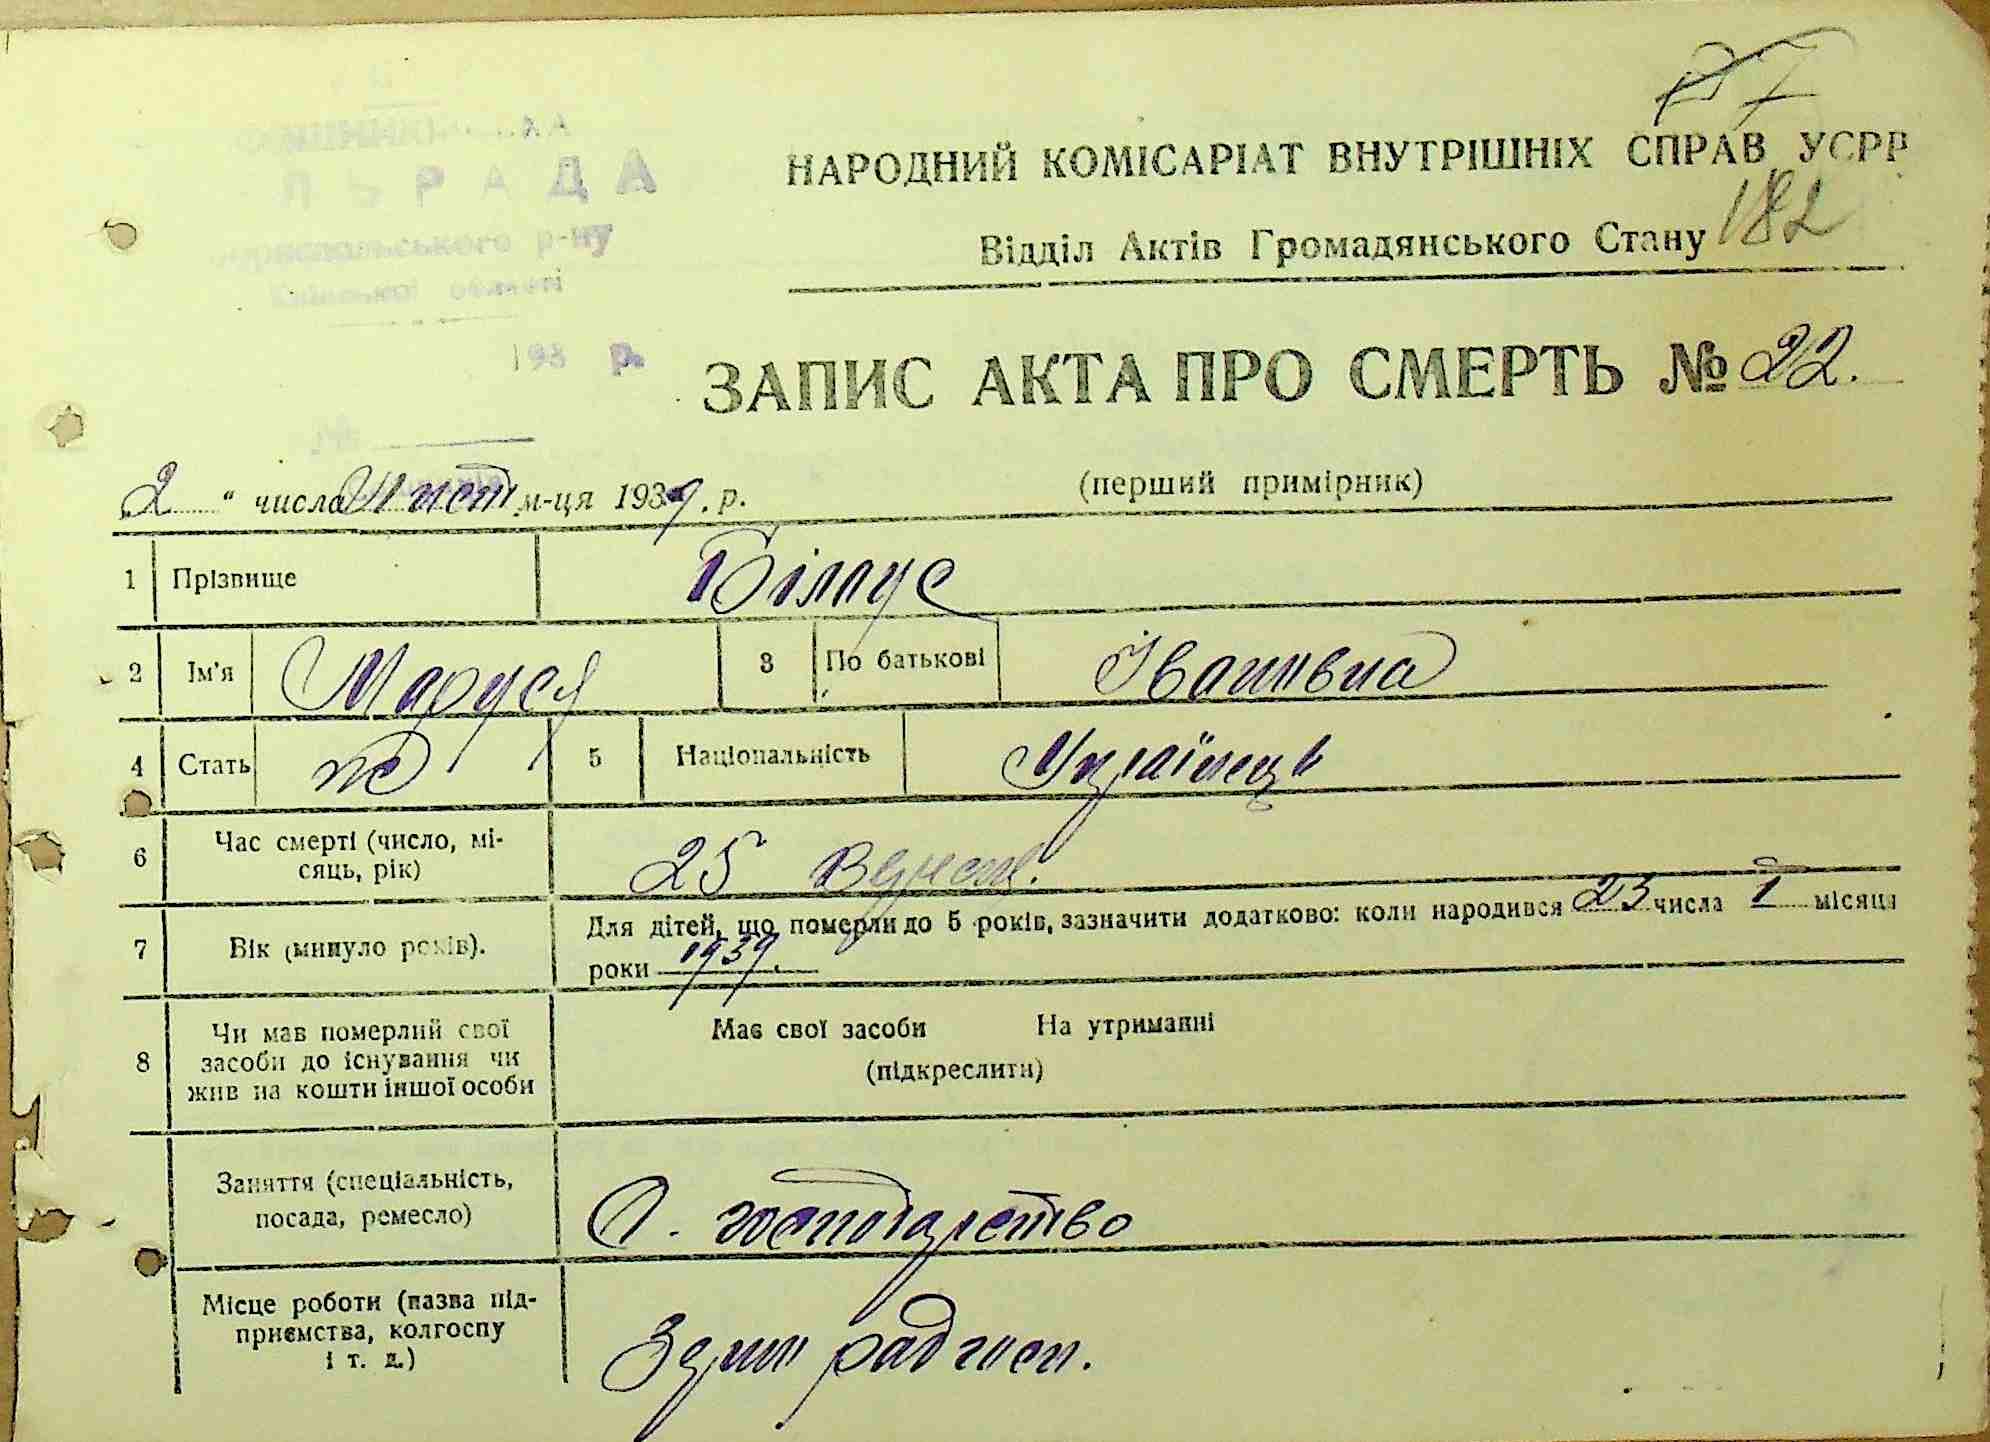 РАДА
р-ну
області
193 р.
НАРОДНИЙ КОМІСАРІАТ ВНУТРІШНІХ СПРАВ УСРР
182
Відділ Актів Громадянського Стану
ЗАПИС АКТА ПРО СМЕРТЬ № 22.
(перший примірник)
2 " числа Лист м-ця 1939 . р.
1 Прізвище Білаус
2 Ім'я Маруся 3 По батькові Іванівна
4 Стать ж 5 Національність Українець
6 Час смерті (число, мі-
сяць, рік) 25 Верес.
7 Вік (минуло років). Для дітей, що померли до 5 років, зазначити додатково: коли народився 23 числа I місяця
роки 1939.
8 Чи мав померлий свої
засоби до існування чи
жив на кошти іншої особи
Має свої засоби На утриманні
(підкреслити)
Заняття (спеціальність,
посада, ремесло) С. господарство
Місце роботи (назва під-
приємства, колгоспу
і т. д.) Зерно радгосп.